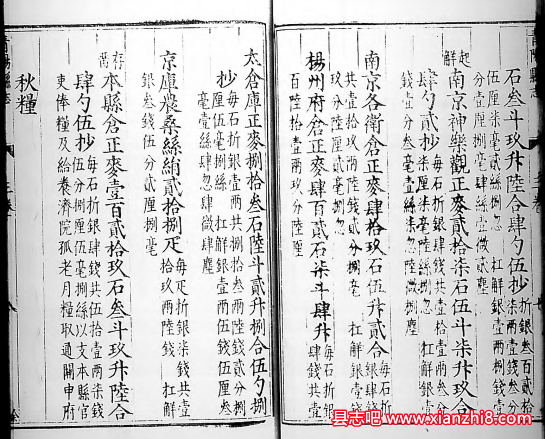 石叁斗玖升陸合肆勺伍抄
折銀叁百貳拾
柒兩壹錢叁分
伍厘柒毫貳絲
分壹厘捌毫
扛解銀壹錢伍
起解
南京神樂觀正麥貳拾柒石伍斗柒升玖合
肆勺貳抄
每石折銀肆錢共壹拾壹兩叁
分柒厘柒毫陸絲捌忽
扛解銀壹
錢壹分壹絲柒忽壹微貳塵
南京各衛倉正麥肆拾玖石伍升貳合
每石折
銀肆錢
共壹拾玖兩陸錢貳分捌毫
扛解銀壹錢
玖分陸厘貳毫捌忽
揚州府倉正麥肆百貳石柒斗肆升
每石折
銀肆錢共壹
百陸拾壹兩玖分陸厘
太倉庫正麥捌拾叁石陸斗貳升捌合伍勺捌
抄
每石折銀壹兩共捌拾叁兩陸錢貳分捌
厘伍毫捌絲
扛解銀壹兩伍錢伍厘叁
毫壹絲肆忽肆微肆塵
京庫農桑絲絹貳拾捌疋
每疋折銀柒錢共壹
拾玖兩陸錢
扛解
銀叁錢伍分貳厘捌毫
存留
本縣倉正麥壹百貳拾玖石叁斗玖升陸合
肆勺伍抄
每石折銀肆錢共伍拾壹兩柒錢
伍分捌厘伍毫捌絲以支本縣官
吏俸糧及給養濟院孤老月糧取通關申府
秋糧
县志吧 www.xianzhi8.com